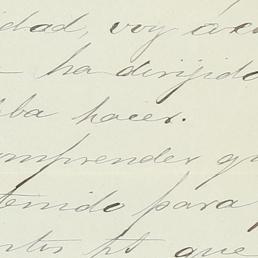 idad, voy á
ha dirijido
ba hacer.
omprender q
tenido para
que